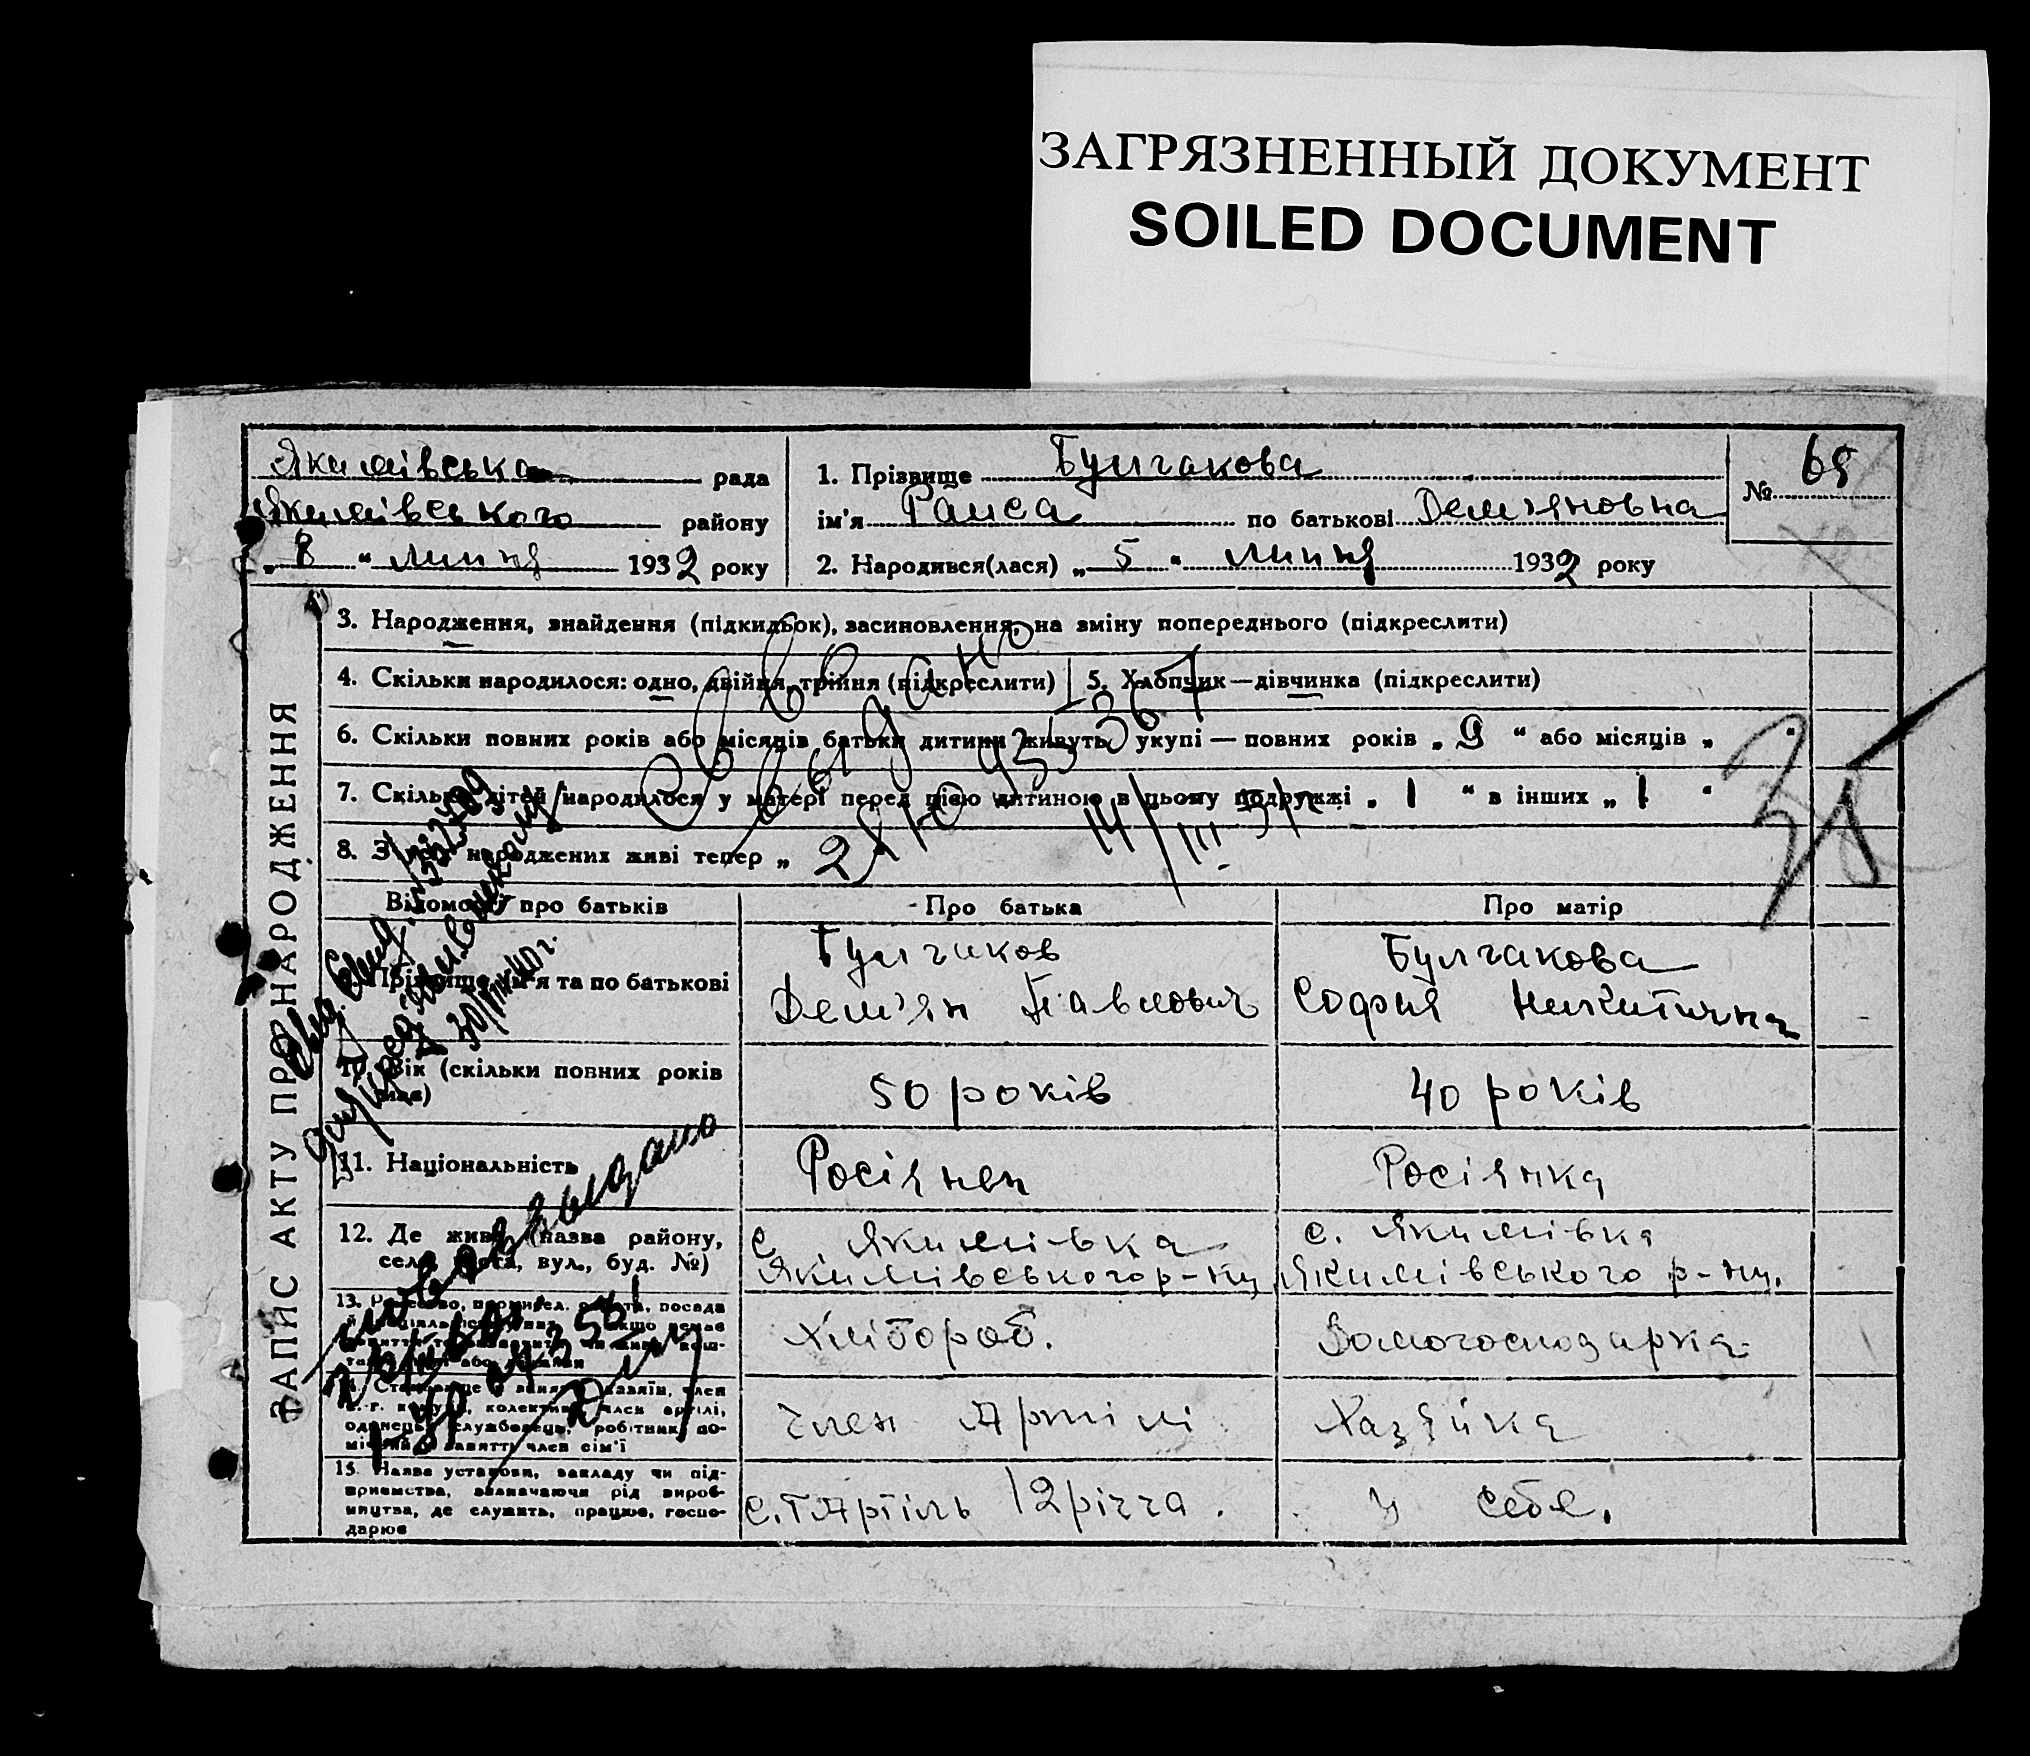 ЗАГРЯЗНЕННЫЙ ДОКУМЕНТ
SOILED DOCUMENT
Якимівська рада
Якимівського району
„ 8 “ липня 1932 року
1. Прізвище Булгакова
ім'я Раиса по батькові Дем'яновна
2. Народився(лася) „ 5 “ липня 1932 року
№ 65
ЗАПИС АКТУ ПРО НАРОДЖЕННЯ
3. Народження, знайдення (підкидьок), засиновлення, на зміну попереднього (підкреслити)
4. Скільки народилося: одно, двійня, трійня (підкреслити)
5. Хлопчик—дівчинка (підкреслити)
6. Скільки повних років або місяців батьки дитини живуть укупі — повних років „ 9 “ або місяців „ “
7. Скільки дітей народилося у матері перед цією дитиною в цьому подружжі „ 1 “ в інших „ 1 “
8. З них народжених живі тепер „ 2 “
Відомості про батьків
Про батька
Про матір
Прізвище, ім'я та по батькові
Булгаков
Дем'ян Павлович
Булгакова
София Никитична
10. Вік (скільки повних років має)
50 років
40 років
11. Національність
Росіянен
Росіянка
12. Де живе (назва району,
села, міста, вул., буд. №)
с. Якимівка
Якимівського р-ну
с. Якимівка
Якимівського р-ну.
13. посада
Хлібороб.
Домогосподарка
член
член Артілі
Хазяйка
15. Назва установи, закладу чи під-
приємства, зазначаючи рід вироб-
ництва, де служить, працює, госпо-
дарює
с.г Артіль 12 річча.
У себе.
30/VIII-40 г.
14/III-57